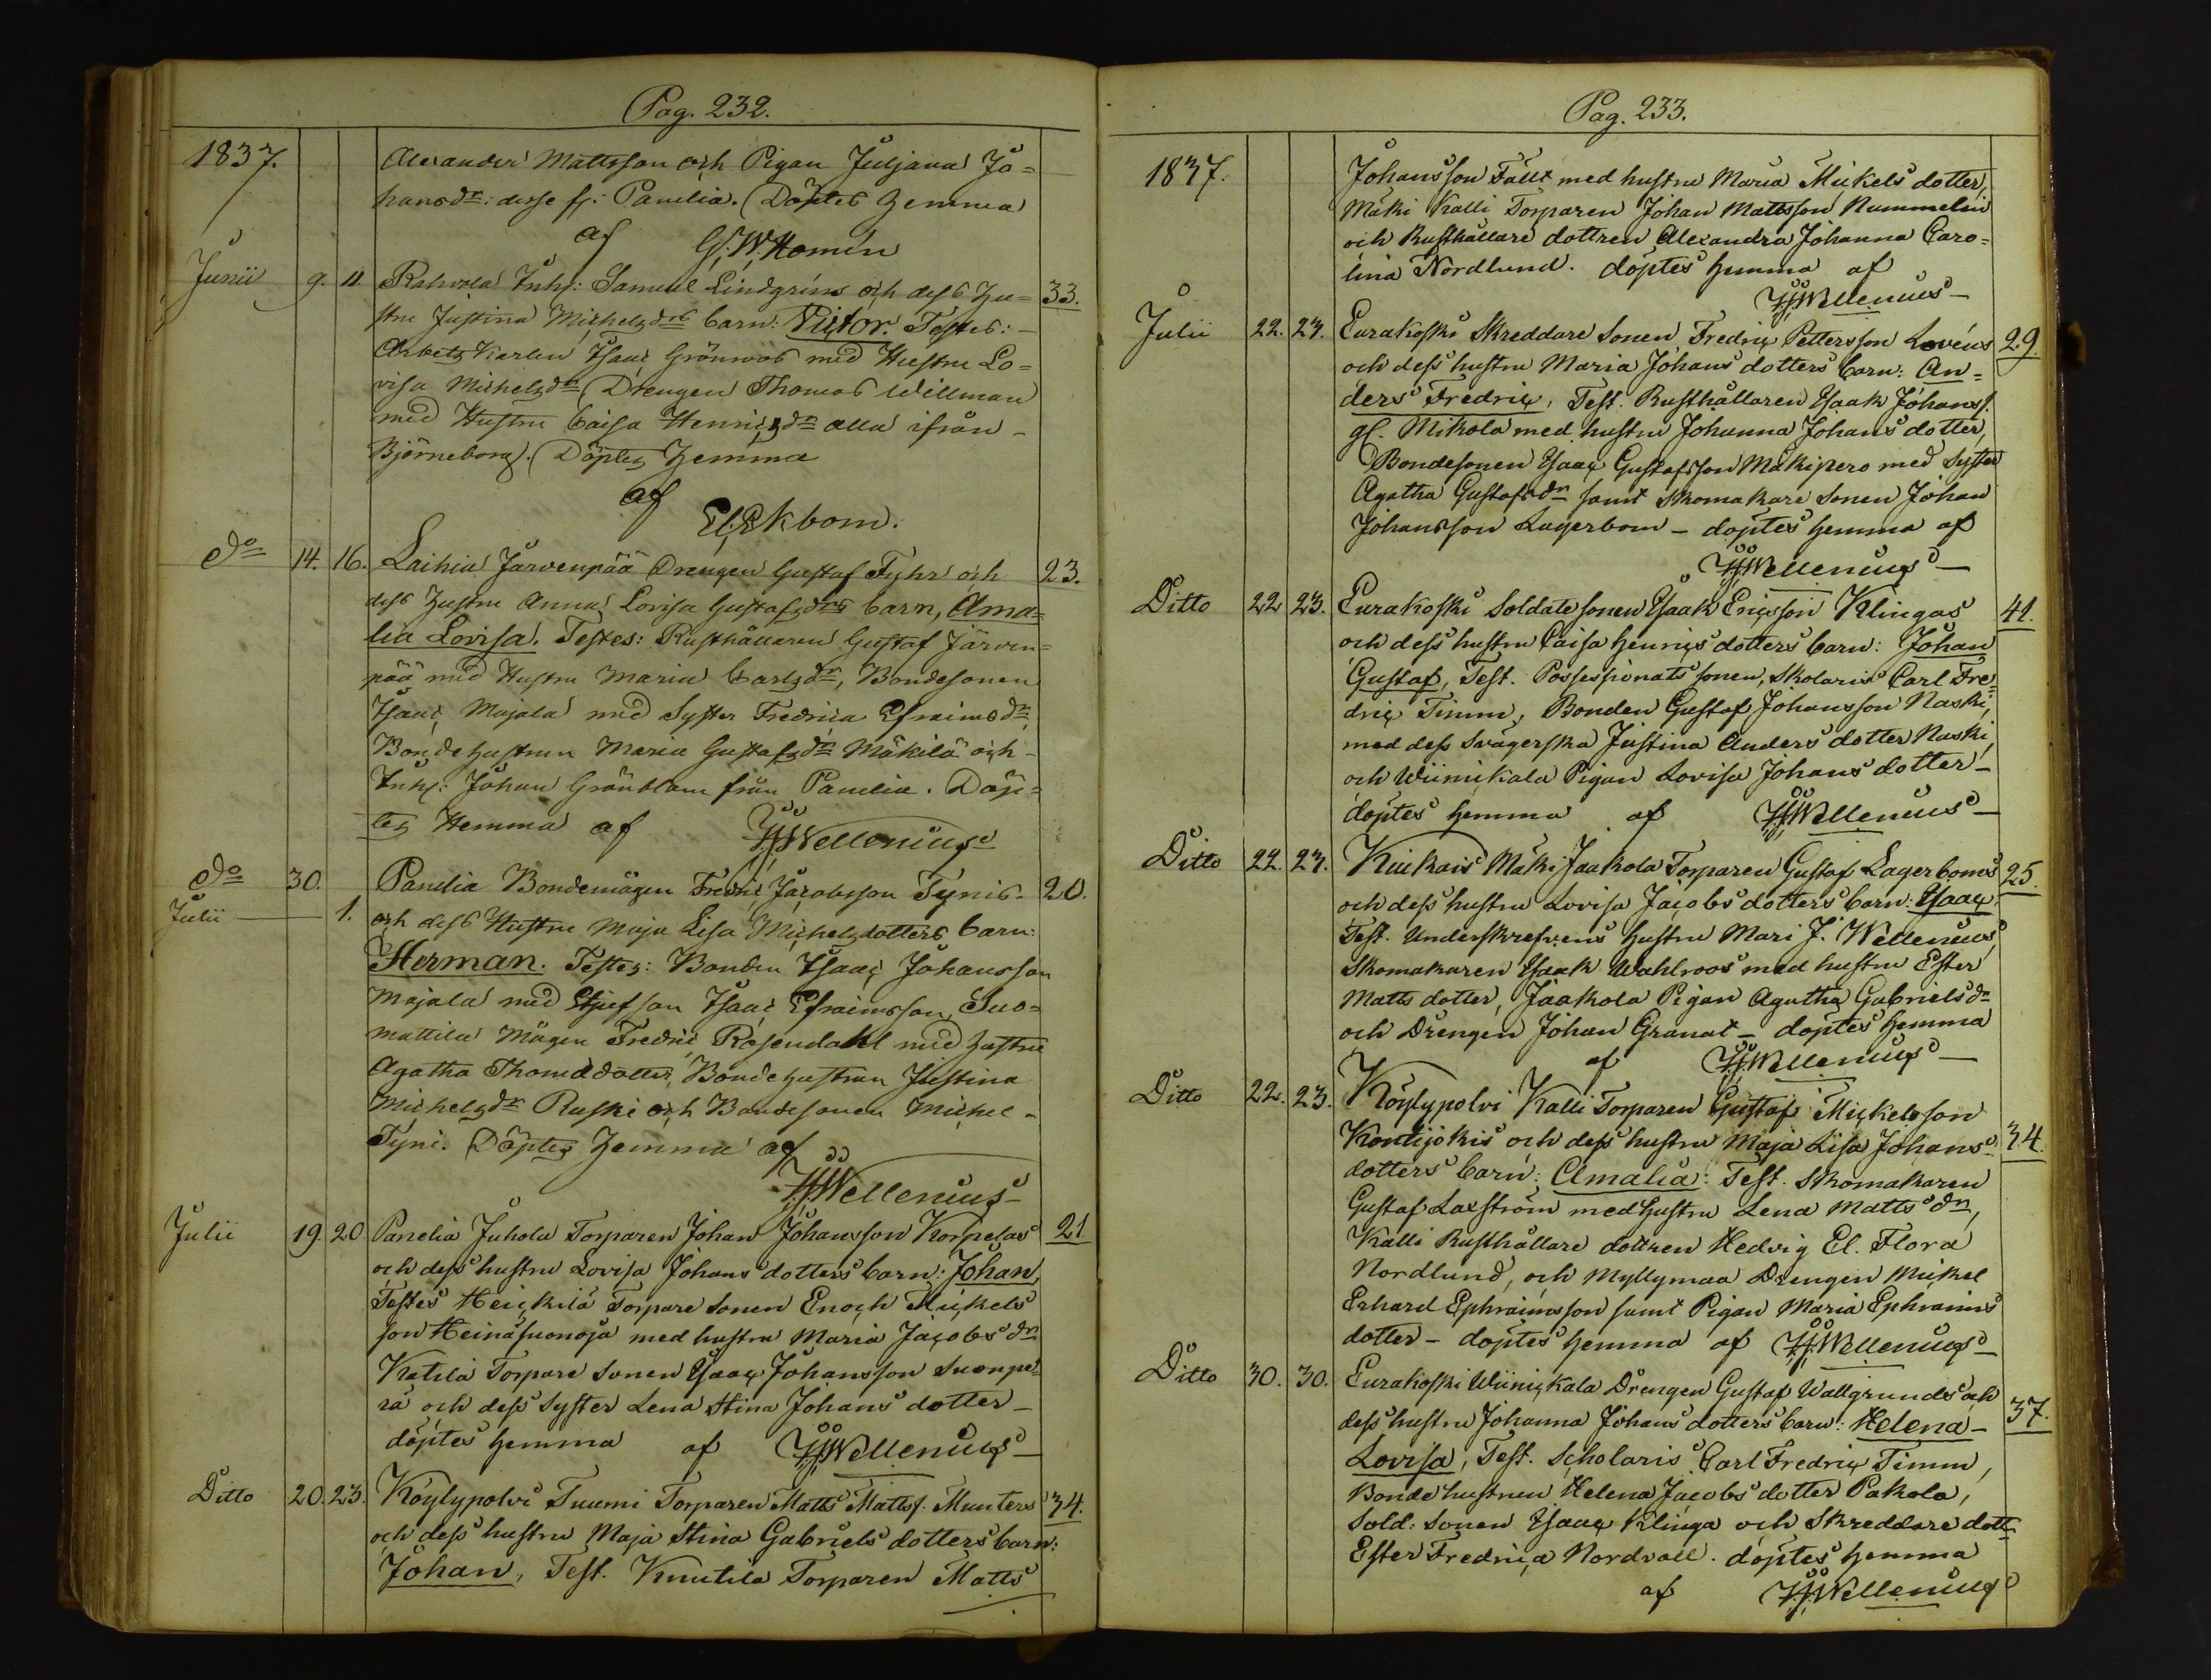 Pag. 232.
1837. Alexander Mattsson och Pigan Juljana Jo=
hansdr: desse fr: Panelia. Döptes hemma
af G. W. Homén
Junii 9. 11. Rahvola Inh: Samuel Lindgréns och dess Hu= 33.
stru Justina Michelsdrs barn: Victor. Testes:-
Arbets Karlen Isaac Grönroos med Hustru Lo=
visa Michelsdr, Drengen Thomas Willman
med Hustru Caisa Henricsdr alla ifrån -
Björneborg. Döptes hemma
af
El: Ekbom.
do 14. 16. Laihia Järvenpää Drengen Gustaf Fyhr och 23.
dess hustru Anna Lovisa Gustafsdrs barn, Ama=
lia Lovisa. Testes: Rusthållaren Gustaf Järven=
pää med Hustru Maria Carlsdr, Bondesonen
Isaac Majala med Syster Fredrica Efraimsdr,
Bondehustrun Maria Gustafsdr Mäkilä och -
Inh: Johan Grönblom från Panelia. Döp=
tes Hemma af HJWellenius
do 30. Panelia Bondemågen Fredric Jacobsson Tynis- 20.
Julii 1. och dess Hustru Maja Lisa Michelsdotters barn:
Herman. Testes: Bonden Isaac Johansson
Majala med Stjufson Isaac Efraimsson, Suo=
mattila Mågen Fredric Rosendahl med hustru
Agatha Thomædotter, Bondehustrun Justina
Michelsdr Ruski och Bondesonen Michel -
Tyni. Döptes hemma af
HJWellenius
Julii 19. 20 Panelia Juhola Torparen Johan Johansson Korpelas 21
och dess hustru Lovisa Johans dotters barn: Johan,
Testes Heickilä Torpare Sonen Enoch Mickels
son Heinäsuonoja med hustru Maria Jacobs dr
Katila Torpare Sonen Isaac Johansson Suonpe
rä och dess Syster Lena Stina Johans dotter -
döptes hemma af HJWellenius
Ditto 20. 23. Köylypolvi Tuumi Torparen Matts Mattss. Munters 34.
och dess hustru Maja Stina Gabriels dotters barn:
Johan, Test. Knutila Torparen Matts
Pag. 233.
1837. Johansson Fält med hustru Maria Mickels dotter,
Mäki Kalli Torparen Johan Mattsson Nummelin
och Rusthållare dottren Alexandra Johanna Caro=
lina Nordlund. döptes hemma af
HJWellenius
Julii 22. 23. Eurakoski Skreddare Sonen Fredric Pettersson Lovéns 29.
och dess hustru Maria Johans dotters barn: An=
ders Fredric, Test. Rusthållaren Isaak Johanss.
gl. Mikola med hustru Johanna Johans dotter,
Bondesonen Isaac Gustafsson Mäkipero med Syster
Agatha Gustafs dr samt Skomakare Sonen Johan
Johansson Lagerbom - döptes hemma af
HJWellenius
Ditto 22 23. Eurakoski Soldate sonen Isaak Ericsson Klingas 41.
och dess hustru Caisa Henrics dotters barn: Johan
Gustaf, Test. Possessionats sonen, Skolaris Carl Fre=
dric Timm, Bonden Gustaf Johansson Naski,
med dess Svägerska Justina Anders dotter Naski,
och Wiinikala Pigan Lovisa Johans dotter -
döptes hemma af HJWellenius
Ditto 22. 23. Kiukais Mäki Jaakola Torparen Gustaf Lagerboms 25.
och dess hustru Lovisa Jacobs dotters barn: Isaac,
Test. Underskrefvens hustru Mari J. Wellenius,
Skomakaren Isaak Wahlroos med hustru Ester
Matts dotter, Jaakola Pigan Agatha Gabriels dr
och Drengen Johan Granat - döptes hemma
af HJWellenius
Ditto 22. 23. Köylypolvi Kalli Torparen Gustaf Mickelsson
Kontijokis och dess hustru Maja Lisa Johans 34.
dotters barn: Amalia: Test. Skomakaren
Gustaf Laxström med hustru Lena Matts dr,
Kalli Rusthållare dottren Hedvig El. Flora
Nordlund, och Myllymaa Drengen Mickel
Erhard Ephraimsson samt Pigan Maria Ephraims
dotter - döptes hemma af HJWellenius
Ditto 30. 30. Eurakoski Wiinickala Drengen Gustaf Wallgrunds och
dess hustru Johanna Johans dotters barn: Helena - 37.
Lovisa, Test. Scholaris Carl Fredric Timm,
Bonde hustrun Helena Jacobs dotter Pakola,
Sold: Sonen Isaac Klinga och Skreddare dott
Ester Fredrica Nordvall. döptes hemma
af HJWellenius